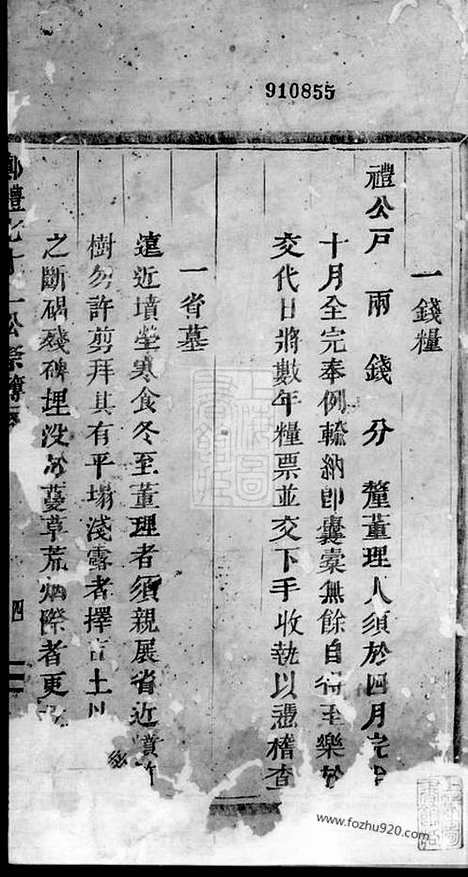 910855
一錢糧
禮公戸 兩 錢 分 釐董理人須於四月完半
十月全完奉例輸納即囊橐無餘自得至樂於
交代日將數年糧票並交下手收執以憑稽查
一省墓
遠近墳塋寒食冬至董理者須親展省近墳
樹勿許剪拜其有平塌淺露者擇吉土以
之斷碣殘碑埋没於蔓草荒烟際者更
四
www.fozhu920.com